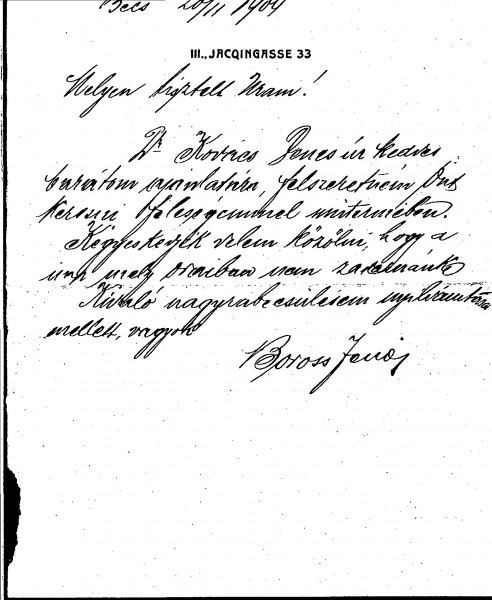 Bécs 20/II 1909
III., JACQINGASSE 33
Mélyen tisztelt Uram!
Dr Kovács Jenő úr kedves
barátom ajánlatára, felszeretném Önt
keresni feleségemmel műtermében.
Kegyeskedjék velem közölni, hogy a
nap mely óraiban nem zavarnánk
Kiváló nagyrabecsülésem nyilvánítása
mellett, vagyok
Boross Jenő